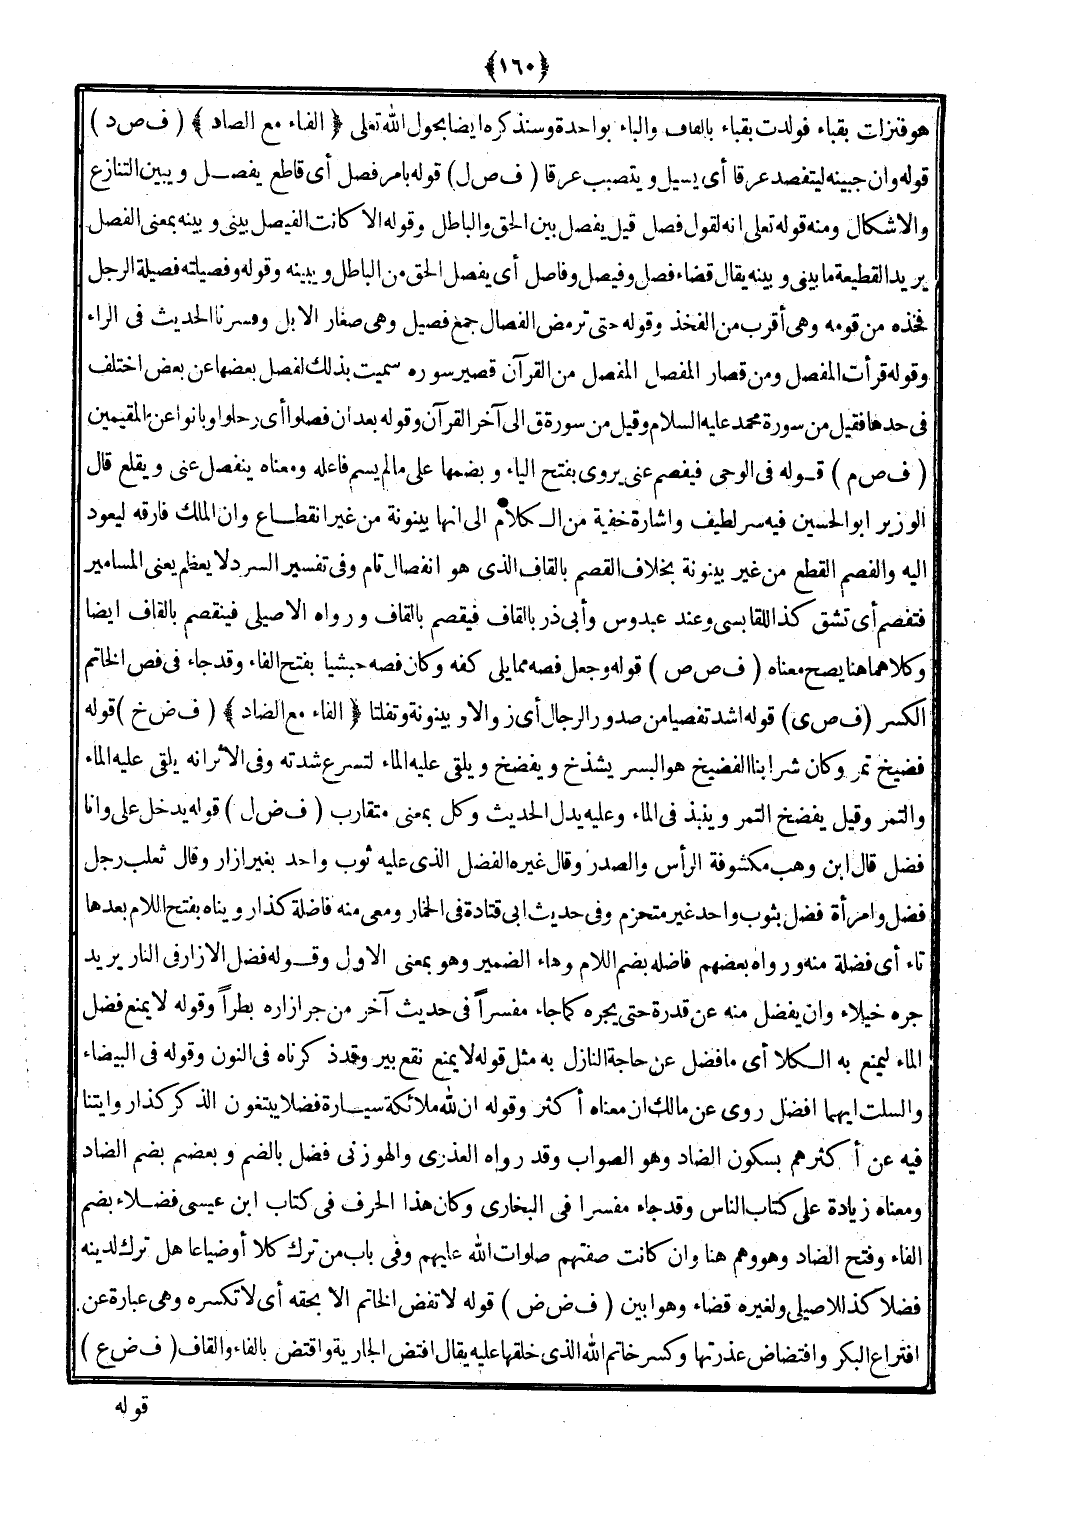 ﴿١٦٠﴾
هو فنزلت بقباء فولدت بقباء بالقاف والباء بواحدة وسنذكره ايضا بحول الله تعلى ﴿ الفاء مع الصاد ﴾ ( ف ص د )
قوله وان جبينه ليتفصد عرقا أى يسيل و يتصبب عرقا ( ف ص ل ) قوله بامر فصل أى قاطع يفصل و يبين التنازع
والاشكال ومنه قوله تعلى انه لقول فصل قيل يفصل بين الحق والباطل وقوله الا كانت الفيصل بينى و بينه بمعنى الفصل
يريد القطيعة ما بينى و بينه يقال قضاء فصل وفيصل وفاصل أى يفصل الحق من الباطل و يبينه وقوله وفصيلته فصيلة الرجل
فخذه من قومه وهى أقرب من الفخذ وقوله حتى ترمض الفصال جمع فصيل وهى صغار الابل وفسرنا الحديث فى الراء
وقوله قرأت المفصل ومن قصار المفصل المفصل من القرآن قصير سوره سميت بذلك لفصل بعضها عن بعض اختلف
فى حدها فقيل من سورة محمد عليه السلام وقيل من سورة ق الى آخر القرآن وقوله بعد ان فصلوا أى رحلوا وبانوا عن المقيمين
( ف ص م ) قوله فى الوحى فيفصم عنى يروى بفتح الياء و بضمها على مالم يسم فاعله ومعناه ينفصل عنى و يقلع قال
الوزير ابو الحسين فيه سر لطيف واشارة خفية من الكلام الى انها بينونة من غير انقطاع وان الملك فارقه ليعود
اليه والفصم القطع من غير بينونة بخلاف القصم بالقاف الذى هو انفصال تام وفى تفسير السرد لا يعظم يعنى المسامير
فتفصم أى تشق كذا للقابسى وعند عبدوس وأبى ذر بالقاف فيقصم بالقاف و رواه الاصيلى فينقصم بالقاف ايضا
وكلاهما هنا يصح معناه ( ف ص ص ) قوله وجعل فصه مما يلى كفه وكان فصه حبشيا بفتح الفاء وقد جاء فى فص الخاتم
الكسر ( ف ص ى ) قوله اشد تفصيا من صدور الرجال أى زوالا و بينونة وتفلتا ﴿ الفاء مع الضاد ﴾ ( ف ض خ ) قوله
فضيخ تمر وكان شرابنا الفضيخ هو البسر يشدخ و يفضخ و يلقى عليه الماء لتسرع شدته وفى الأثر انه يلقى عليه الماء
والتمر وقيل يفضخ التمر و ينبذ فى الماء وعليه يدل الحديث وكل بمعنى متقارب ( ف ض ل ) قوله يدخل على وانا
فضل قال ابن وهب مكشوفة الرأس والصدر وقال غيره الفضل الذى عليه ثوب واحد بغير ازار وقال ثعلب رجل
فضل وامرأة فضل بثوب واحد غير متحزم وفى حديث ابى قتادة فى الحمار ومعى منه فاضلة كذا رويناه بفتح اللام بعدها
تاء أى فضلة منه ورواه بعضهم فاضله بضم اللام وهاء الضمير وهو بمعنى الاول وقوله فضل الازار فى النار يريد
جره خيلاء وان يفضل منه عن قدرة حتى يجره كما جاء مفسرا فى حديث آخر من جر ازاره بطرا وقوله لا يمنع فضل
الماء ليمنع به الكلا أى ما فضل عن حاجة النازل به مثل قوله لا يمنع نقع بير وقد ذكرناه فى النون وقوله فى البيضاء
والسلت ايهما افضل روى عن مالك ان معناه أكثر وقوله ان لله ملائكة سيارة فضلا يبتغون الذكر كذا روايتنا
فيه عن أكثرهم بسكون الضاد وهو الصواب وقد رواه العذرى والهوزنى فضل بالضم و بعضم بضم الضاد
ومعناه زيادة على كتاب الناس وقد جاء مفسرا فى البخارى وكان هذا الحرف فى كتاب ابن عيسى فضلاء بضم
الفاء وفتح الضاد وهو وهم هنا وان كانت صفتهم صلوات الله عليهم وفى باب من ترك كلا أو ضياعا هل ترك لدينه
فضلا كذا للاصيلى ولغيره قضاء وهو ابين ( ف ض ض ) قوله لا تفض الخاتم الا بحقه أى لا تكسره وهى عبارة عن
افتراع البكر وافتضاض عذرتها وكسر خاتم الله الذى خلقها عليه يقال افتض الجارية واقتض بالفاء والقاف ( ف ض ع )
قوله